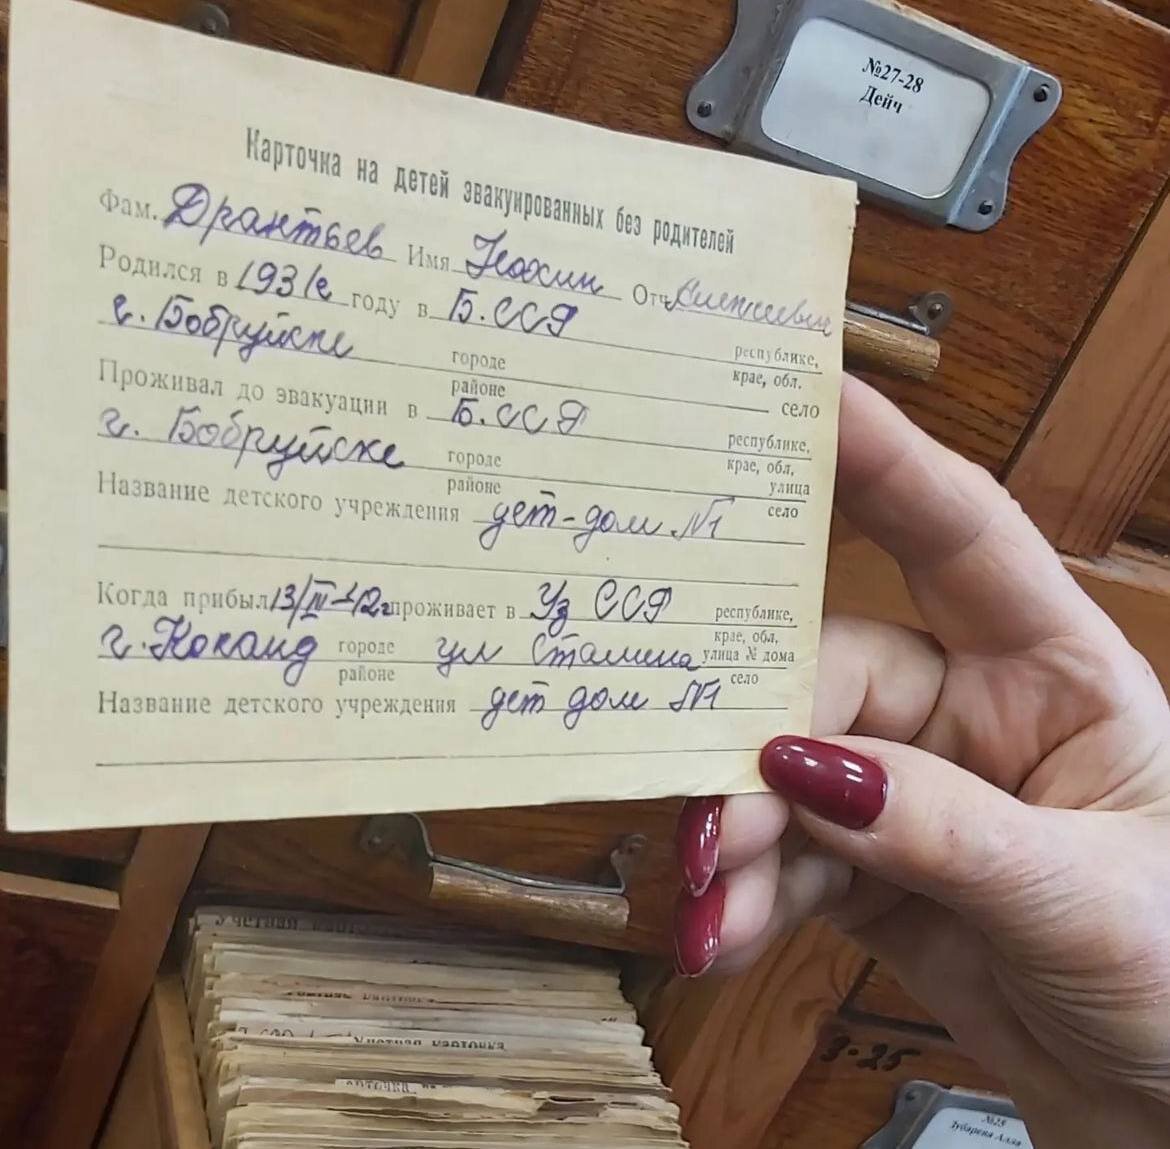 №27-28
Дейч
Карточка на детей эвакуированных без родителей
Фам. Дрантьев Имя Отч.
Родился в 1931 г. году в Б.ССР республике,
г. Бобруйске городе крае, обл.
районе село
Проживал до эвакуации в Б.ССР республике,
г. Бобруйске городе крае, обл.
районе улица
село
Название детского учреждения дет-дом №1
Когда прибыл 13/III-42г проживает в Уз ССР республике,
г. Коканд городе ул Сталина крае, обл.
улица № дома
районе село
Название детского учреждения дет дом №1
Учетная
Учетная карточка
3-25
№25
Зубарева Алла